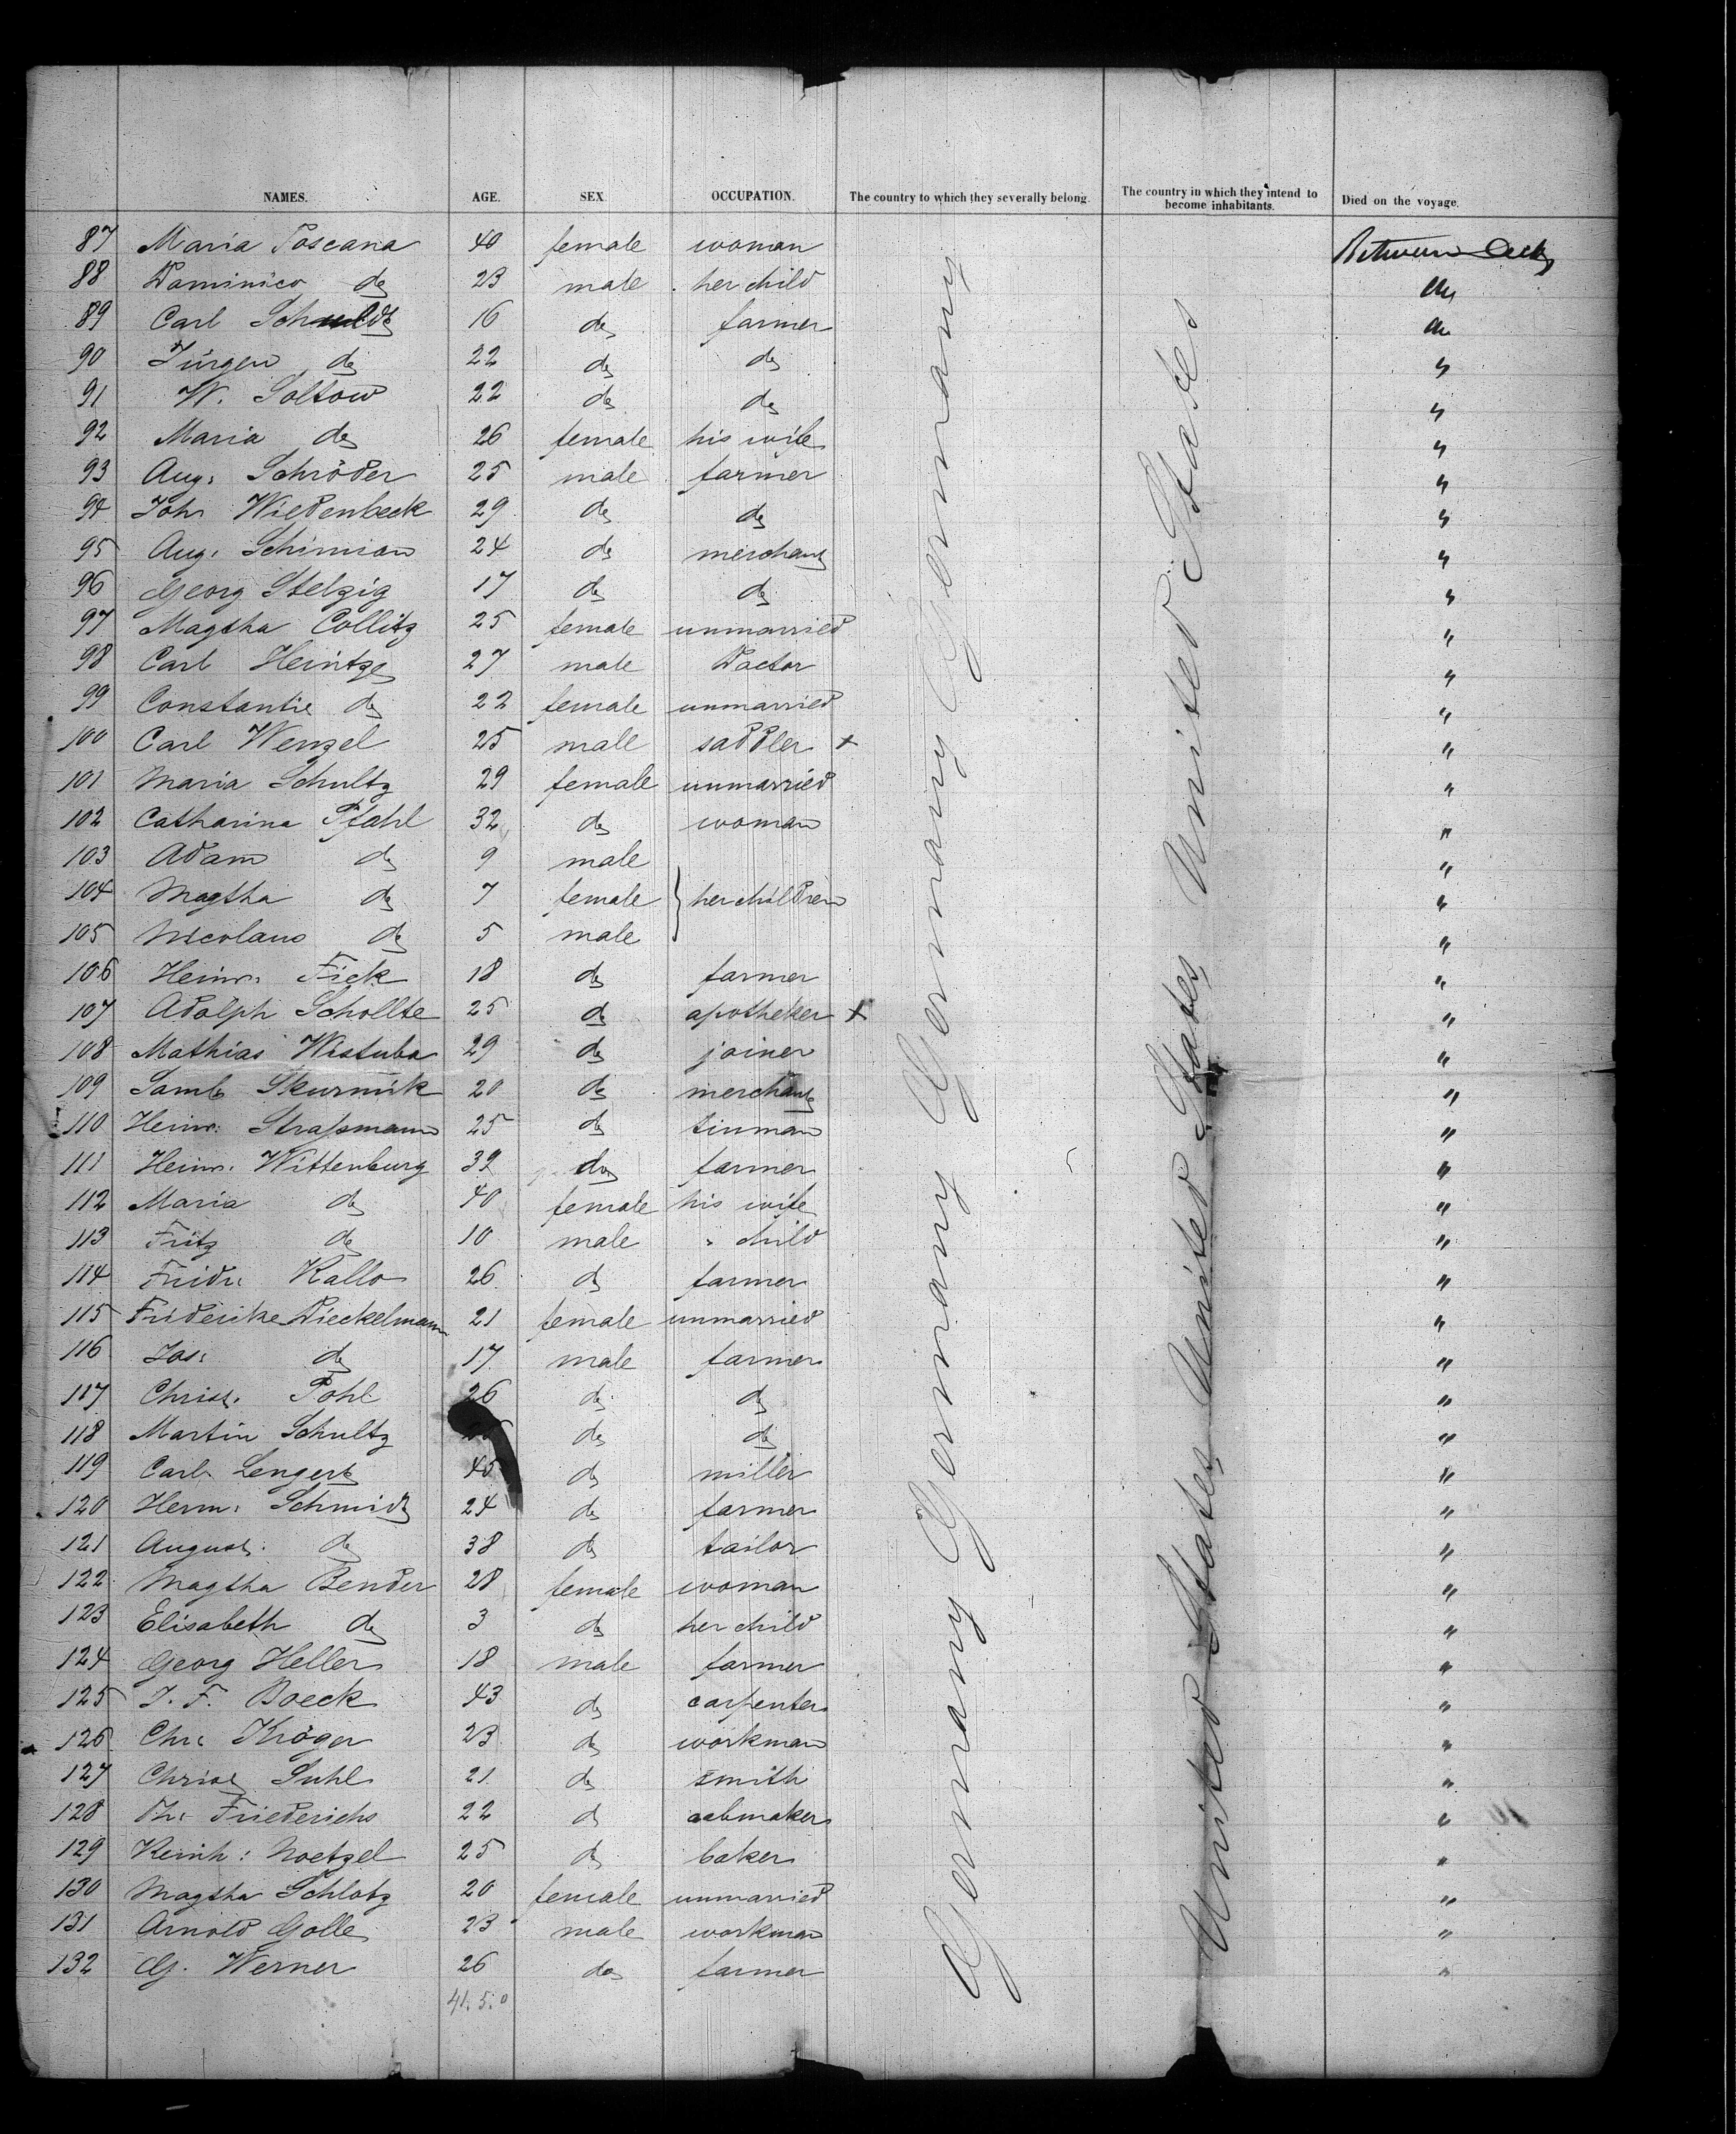 NAMES. AGE. SEX. OCCUPATION. The country to which they severally belong. The country in which they intend to become inhabitants. Died on the voyage.
87 Maria Toscana 40 female woman Between Deck
88 Dominico do 23 male her child do
89 Carl 16 do farmer do
90 Jürgen do 22 do do "
91 W. Soltow 22 do do "
92 Maria do 26 female his wife "
93 Aug: Schröder 25 male farmer "
94 Joh: Wiedenbeck 29 do do "
95 Aug: Schimian 24 do merchant "
96 Georg Stelzig 17 do do "
97 Magtha Collitz 25 female unmarried "
98 Carl Heintze 27 male Doctor "
99 Constantie do 22 female unmarried "
100 Carl Wenzel 25 male saddler + "
101 Maria Schultz 29 female unmarried "
102 Catharina Pfahl 32 do woman "
103 Adam do 9 male "
104 Magtha do 7 female } her children "
105 Nicolaus do 5 male "
106 Heinr: Fick 18 do farmer "
107 Adolph Schollte 25 do apotheker + "
108 Mathias Wistuba 29 do joiner "
109 Saml Skurnik 20 do merchant "
110 Heinr: Straßmann 25 do tinman "
111 Heinr: Wittenburg 39 do farmer "
112 Maria do 40 female his wife "
113 Fritz do 10 male " child "
114 Fridr: Kallo 26 do farmer "
115 Friderike Dieckelmann 21 female unmarried "
116 Jos: do 17 male farmer "
117 Christ. Pohl 26 do do "
118 Martin Schultz do do "
119 Carl Lengert 45 do miller "
120 Herm: Schmidt 24 do farmer "
121 August: do 38 do tailor "
122 Magtha Bender 28 female woman "
123 Elisabeth do 3 do her child "
124 Georg Heller 18 male farmer "
125 J. F. Boeck 43 do carpenter "
126 Chr: Kröger 23 do workman "
127 Christ Suhl 21 do smith "
128 Th: Friederichs 22 do cabmaker "
129 Reinh: Noetzel 25 do baker "
130 Magtha Schlotz 20 female unmarried "
131 Arnold Golle 23 male workman "
132 G. Werner 26 do farmer "
41.5.0
Germany Germany Germany Germany
United States United States United States